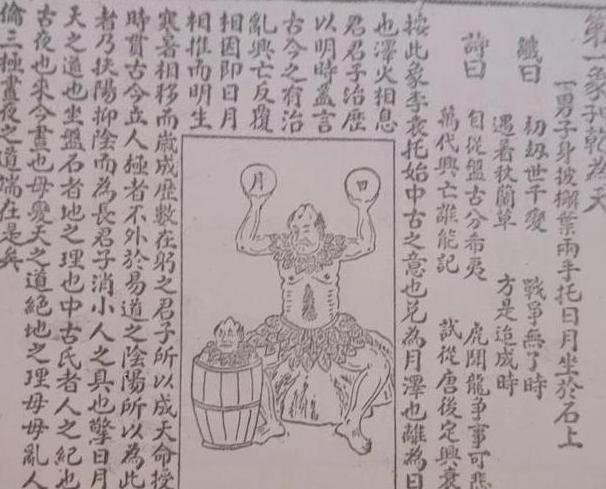 第一象乾為天
一男子身披榭葉兩手托日月坐於石上
讖曰 初刼世千變 戰爭無了時
遇着狄蘭草 方是造成時
詩曰 自從盤古分布夷 虎鬪龍爭事可悲
萬代興亡誰能記 試從唐後定興衰
按此象李袁托始中古之意也兌為月澤也離為日
也澤火相息
君君子治歷
以明時蓋言
古今之有治
亂興亡反覆
相因即日月
相推而明生
日
月
寒暑相移而歲成歷數在躬之君子所以成天命授
時貫古今立人極者不外於易道之陰陽所以為此
者乃扶陽抑陰而為長君子消小人之具也擎日月
天之道也坐盤石者地之理也中古氏者人之紀也
古夜也來今晝也毋變天之道絕地之理毋毋亂人
倫三極晝夜之道端在是矣